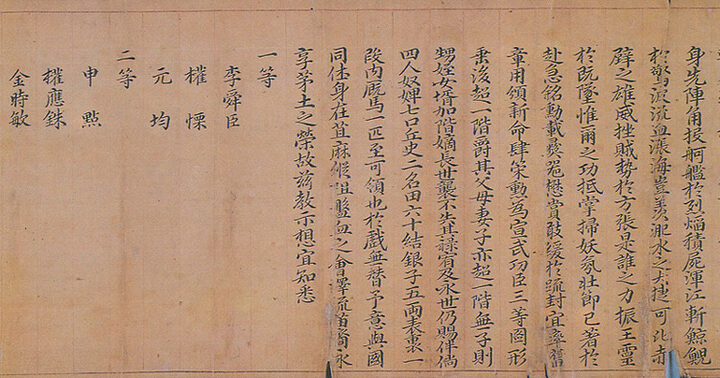 身先陣角投舸艦於烈焔積屍渾江斬鯨鯢
於驚浪流血漲海豈羨淝水之大捷可比赤
壁之雄威挫賊勢於方張是誰之力振王靈
於既墜惟爾之功抵掌掃妖氛壯節已著於
赴急銘勳載彛懋賞敢緩於疏封宜率舊
章用頒新命肆策勳爲宣武功臣三等圖形
垂後超一階爵其父母妻子亦超一階無子則
甥姪女壻加階嫡長世襲不失其祿宥及永世仍賜伴倘
四人奴婢七口丘史二名田六十結銀子五兩表裏一
段內厩馬一匹至可領也於戲無替予意與國
同休身在苴麻縱阻盤血之會澤流苗裔永
享茅土之榮故茲教示想宜知悉
一等
李舜臣
權慄
元均
二等
申點
權應銖
金時敏